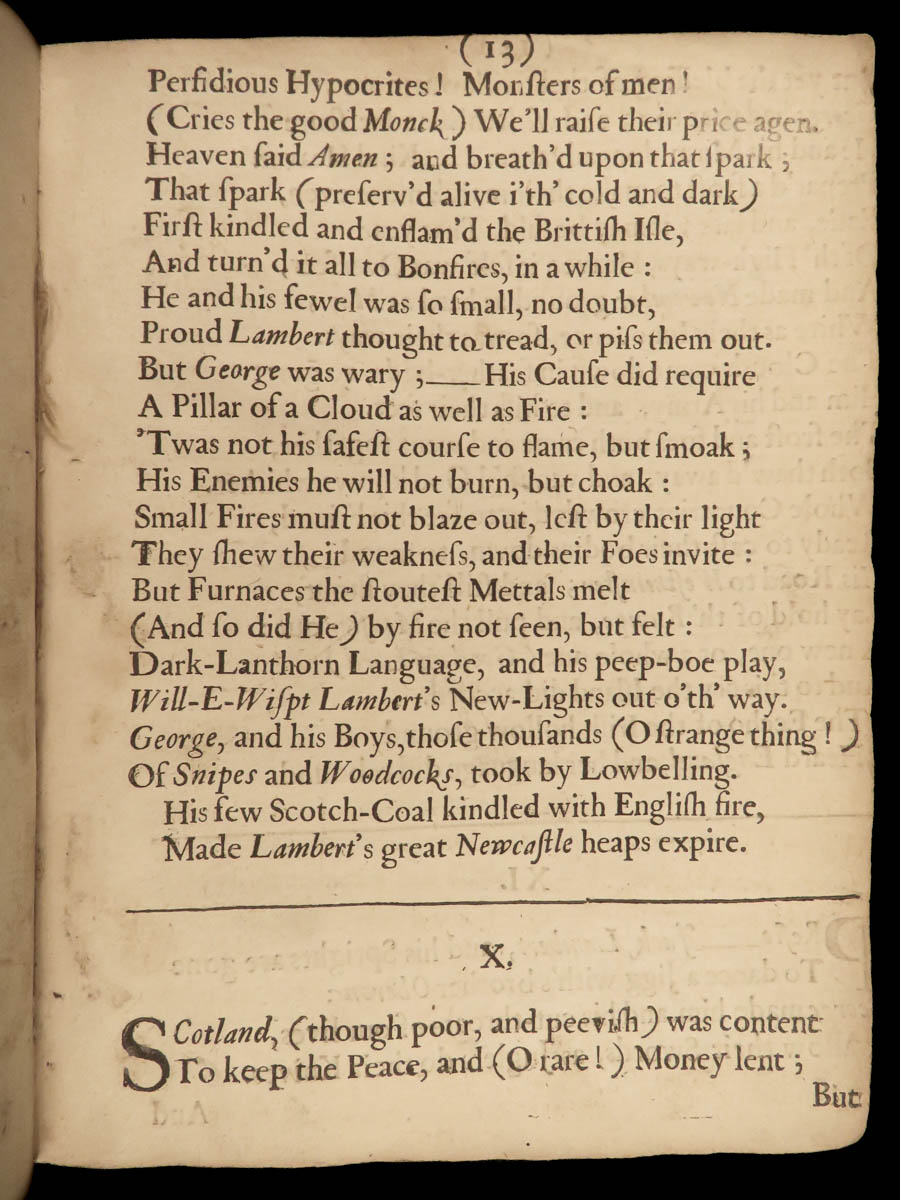 (13)
Perfidious Hypocrites! Monſters of men!
(Cries the good Monck) We'll raiſe their price agen.
Heaven ſaid Amen; and breath'd upon that ſpark;
That ſpark (preſerv'd alive i'th' cold and dark)
Firſt kindled and enflam'd the Brittiſh Iſle,
And turn'd it all to Bonfires, in a while:
He and his fewel was ſo ſmall, no doubt,
Proud Lambert thought to tread, or piſs them out.
But George was wary;—His Cauſe did require
A Pillar of a Cloud as well as Fire:
'Twas not his ſafeſt courſe to flame, but ſmoak;
His Enemies he will not burn, but choak:
Small Fires muſt not blaze out, leſt by their light
They ſhew their weakneſs, and their Foes invite:
But Furnaces the ſtouteſt Mettals melt
(And ſo did He) by fire not ſeen, but felt:
Dark-Lanthorn Language, and his peep-boe play,
Will-E-Wiſpt Lambert's New-Lights out o'th' way.
George, and his Boys, thoſe thouſands (O ſtrange thing!)
Of Snipes and Woodcocks, took by Lowbelling.
His few Scotch-Coal kindled with Engliſh fire,
Made Lambert's great Newcaſtle heaps expire.
X.
SCotland, (though poor, and peeviſh) was content
To keep the Peace, and (O rare!) Money lent;
But